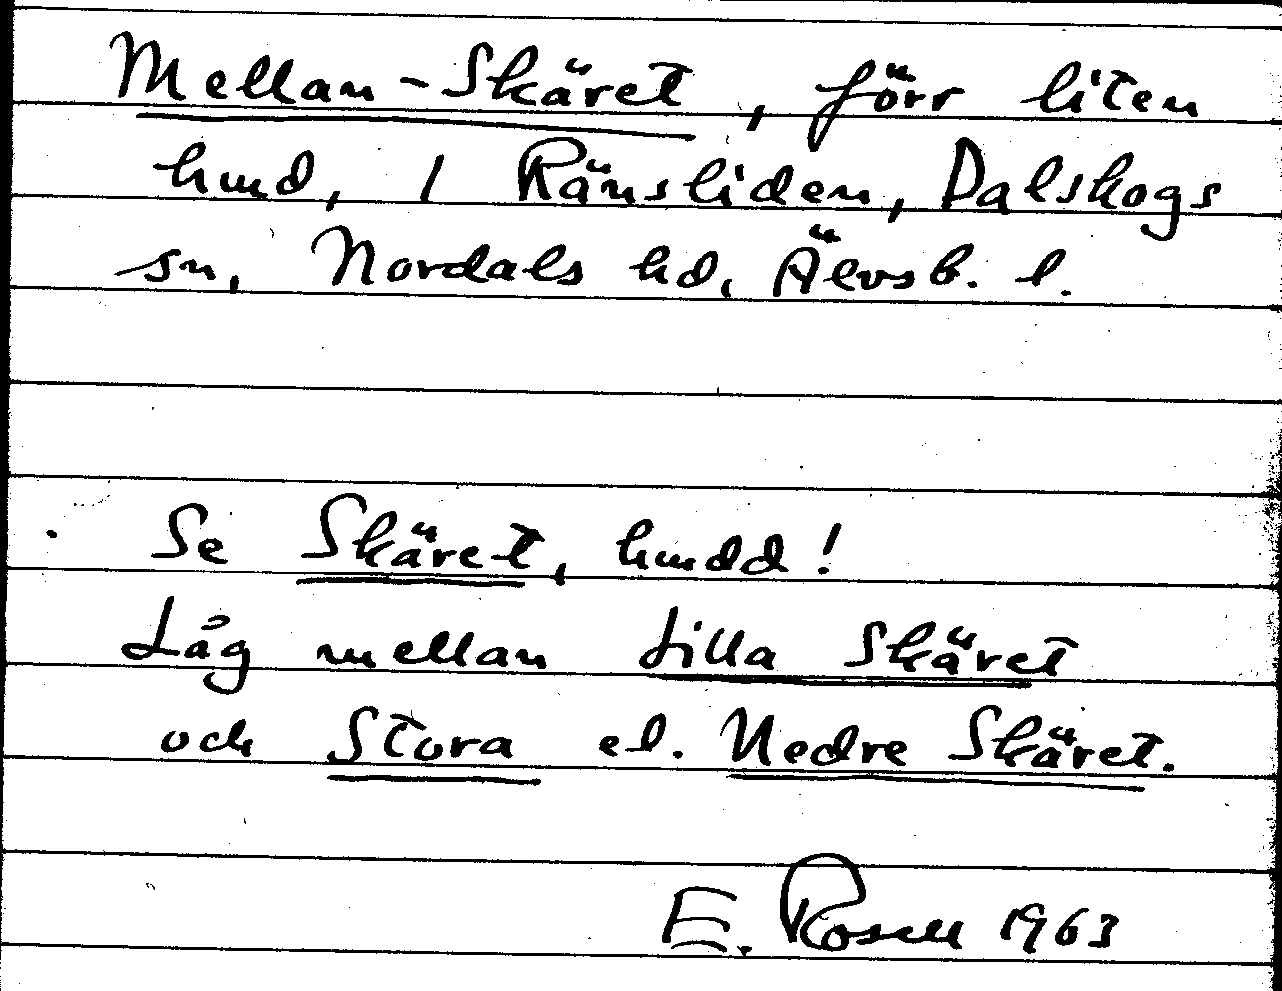 Mellan-Skäret, förr liten
hmd, 1 Ränsliden, Dalskogs
sn, Nordals hd, Älvsb. l.
Se Skäret, hmdd!
Låg mellan Lilla Skäret
och Stora el. Nedre Skäret.
E. Rosell 1963